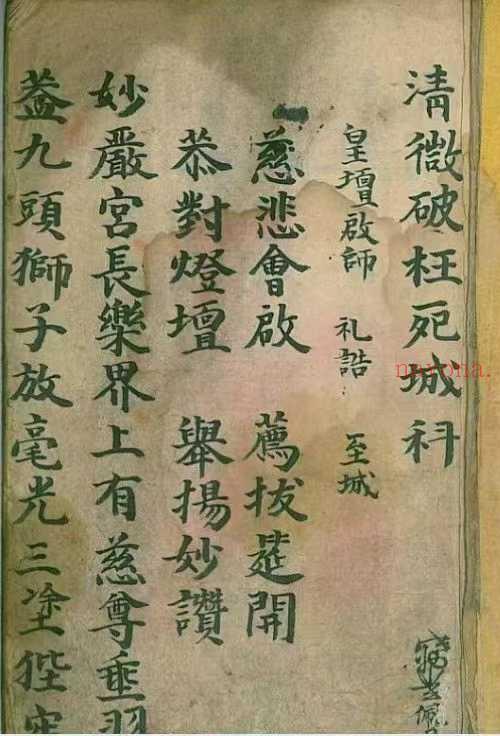 清微破枉死城科
皇壇啟師 礼誥 至城
慈悲會啟 薦拔筵開
恭對燈壇 舉揚妙讚
妙嚴宮長樂界上有慈尊垂
葢九頭獅子放毫光三塗狴牢